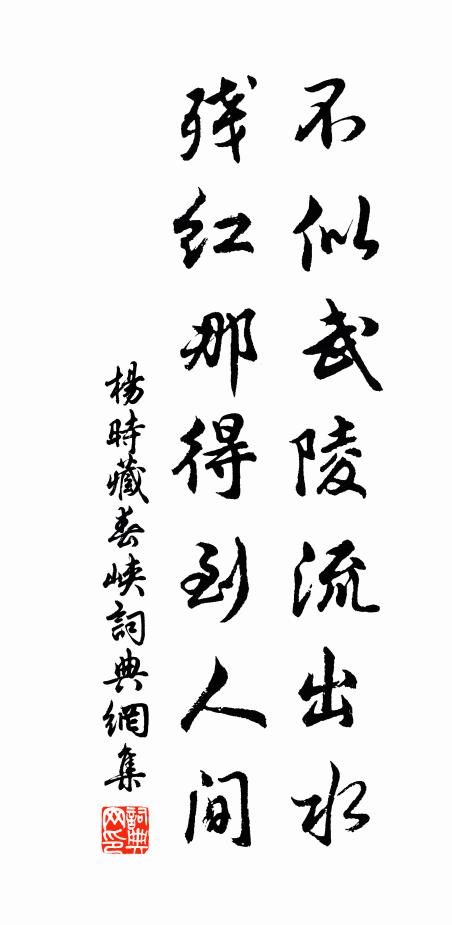 不似武陵流出水
残红那得到人间
楊時藏春峡詞典網集
詞典网印